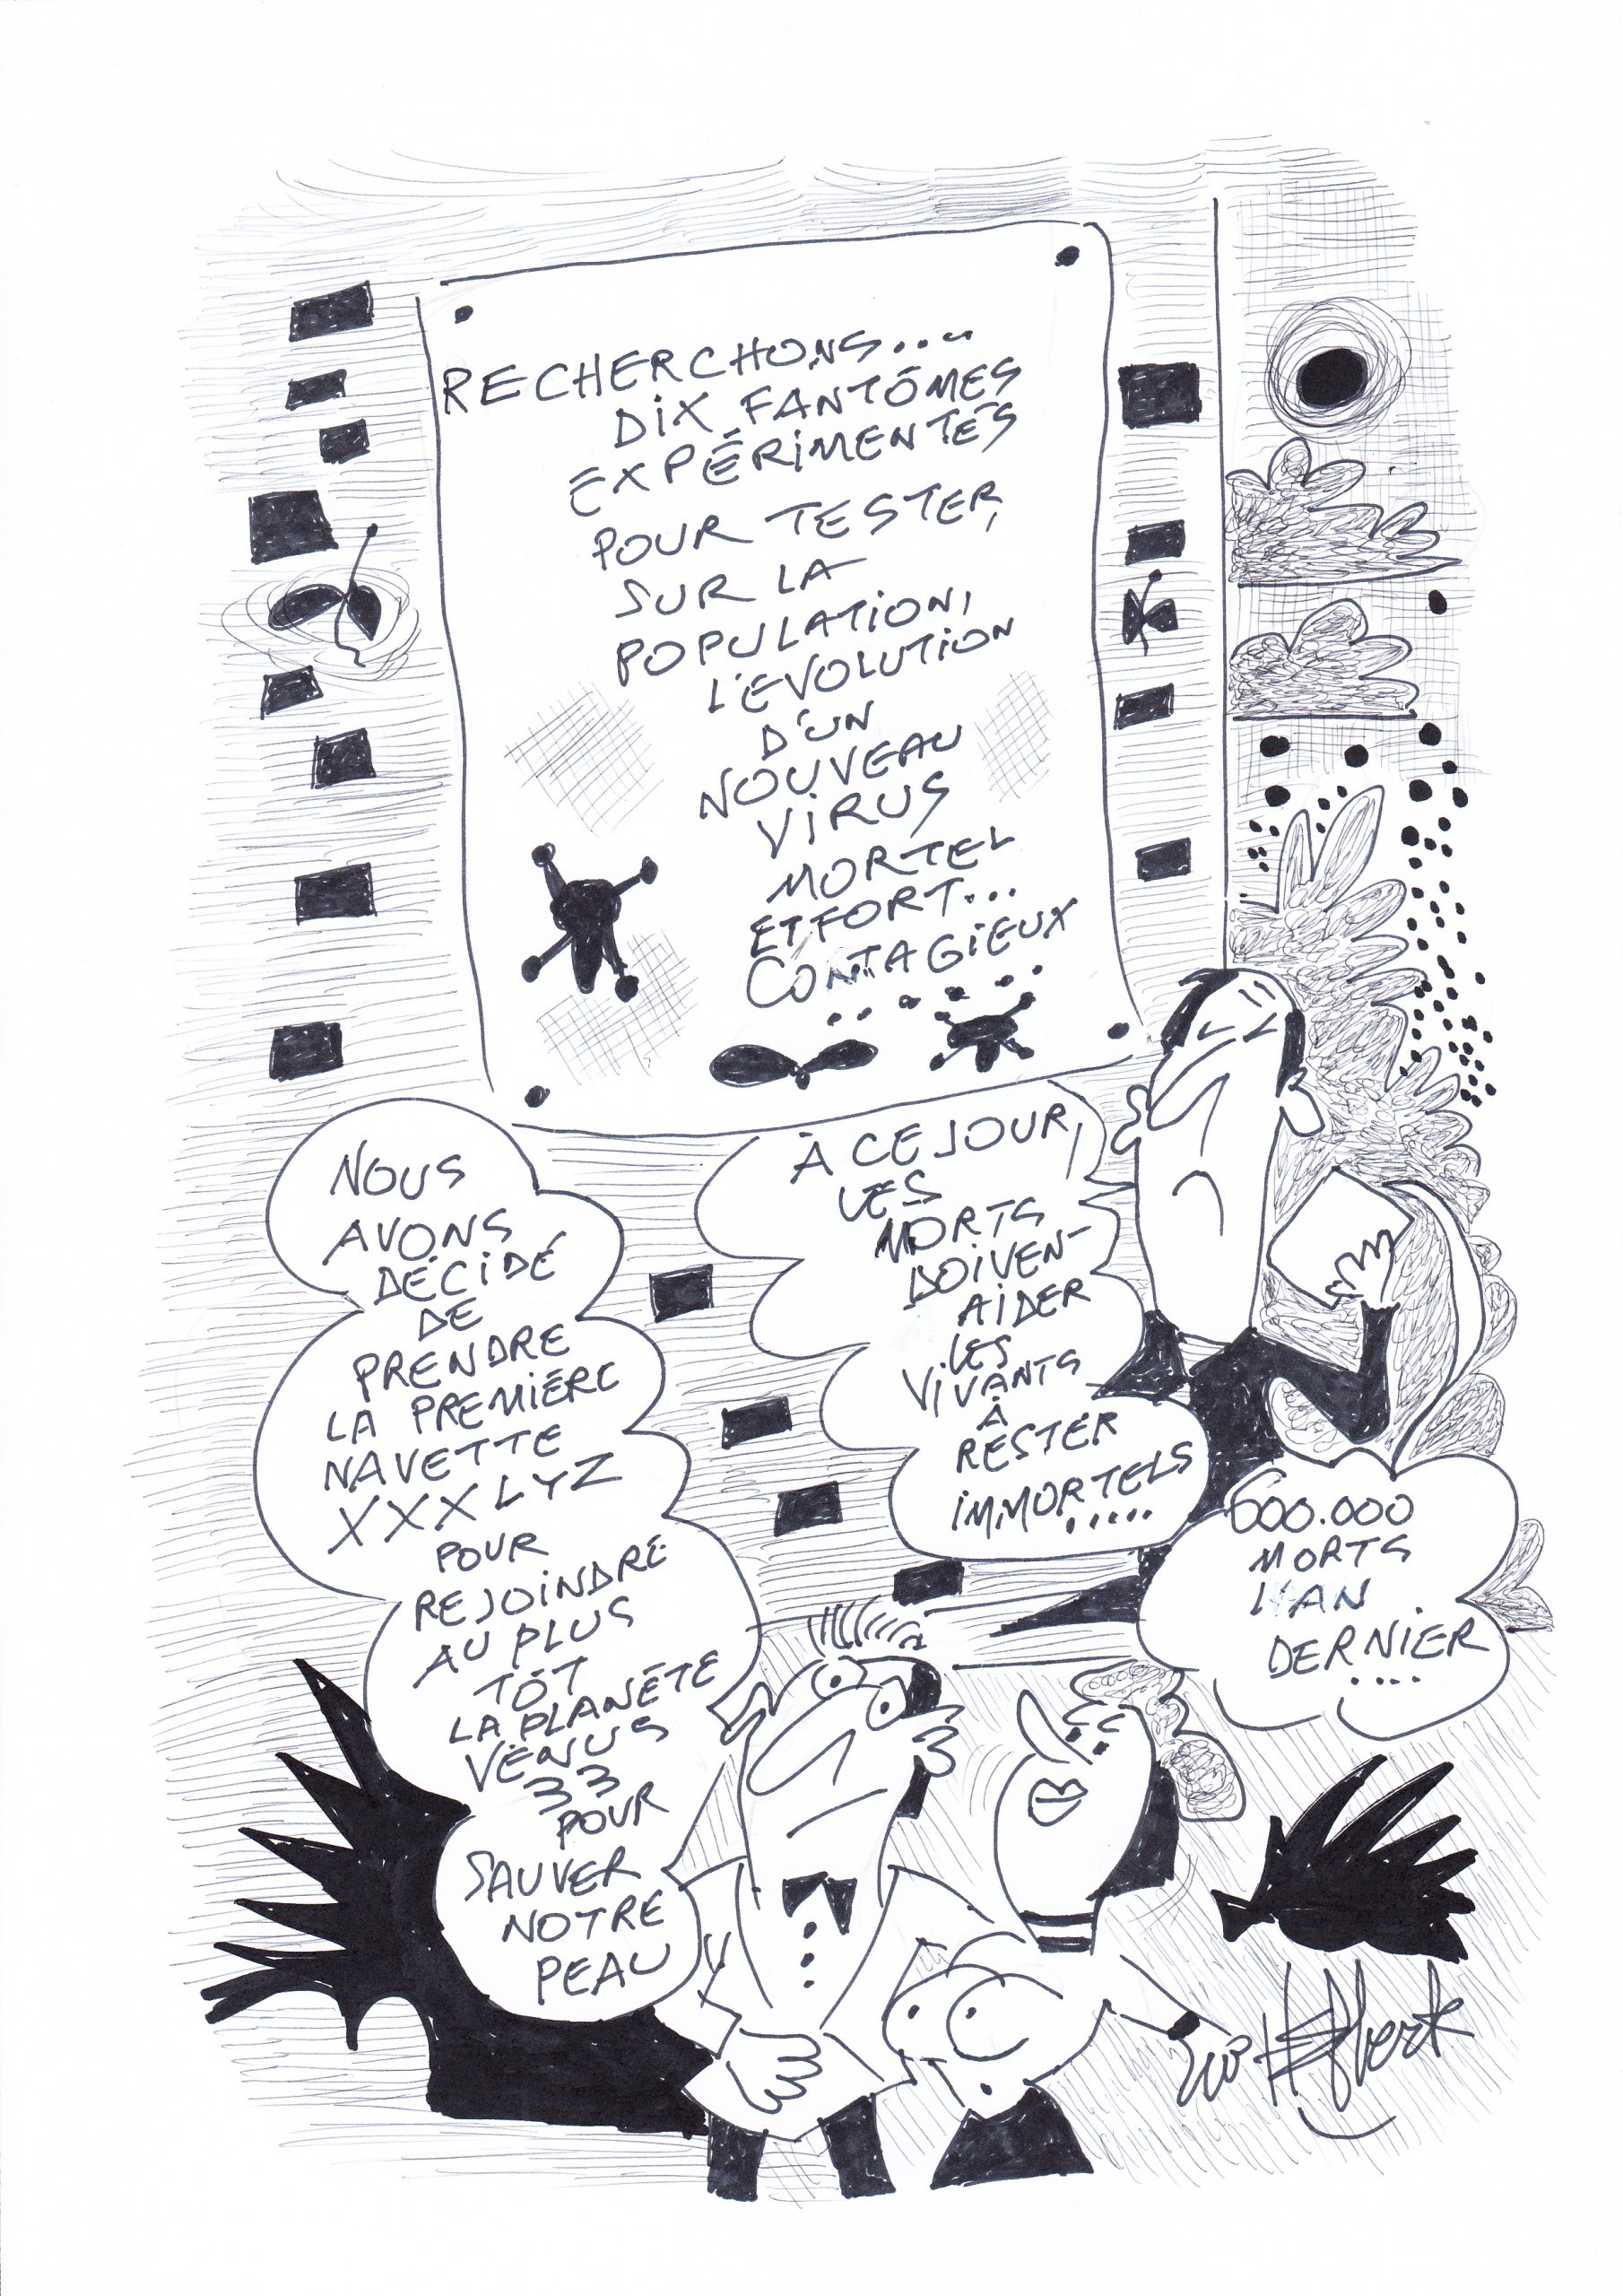 RECHERCHONS....
DIX FANTÔMES
EXPÉRIMENTÉS
POUR TESTER,
SUR LA
POPULATION,
L'ÉVOLUTION
D'UN
NOUVEAU
VIRUS
MORTEL
ET FORT...
CONTAGIEUX
NOUS
AVONS
DÉCIDÉ
DE
PRENDRE
LA PREMIÈRE
NAVETTE
XXXLYZ
POUR
REJOINDRE
AU PLUS
TÔT
LA PLANÈTE
VÉNUS
33
POUR
SAUVER
NOTRE
PEAU
À CE JOUR,
LES
MORTS
DOIVEN-
AIDER
LES
VIVANTS
À
RESTER
IMMORTELS
.....
600.000
MORTS
L'AN
DERNIER
....